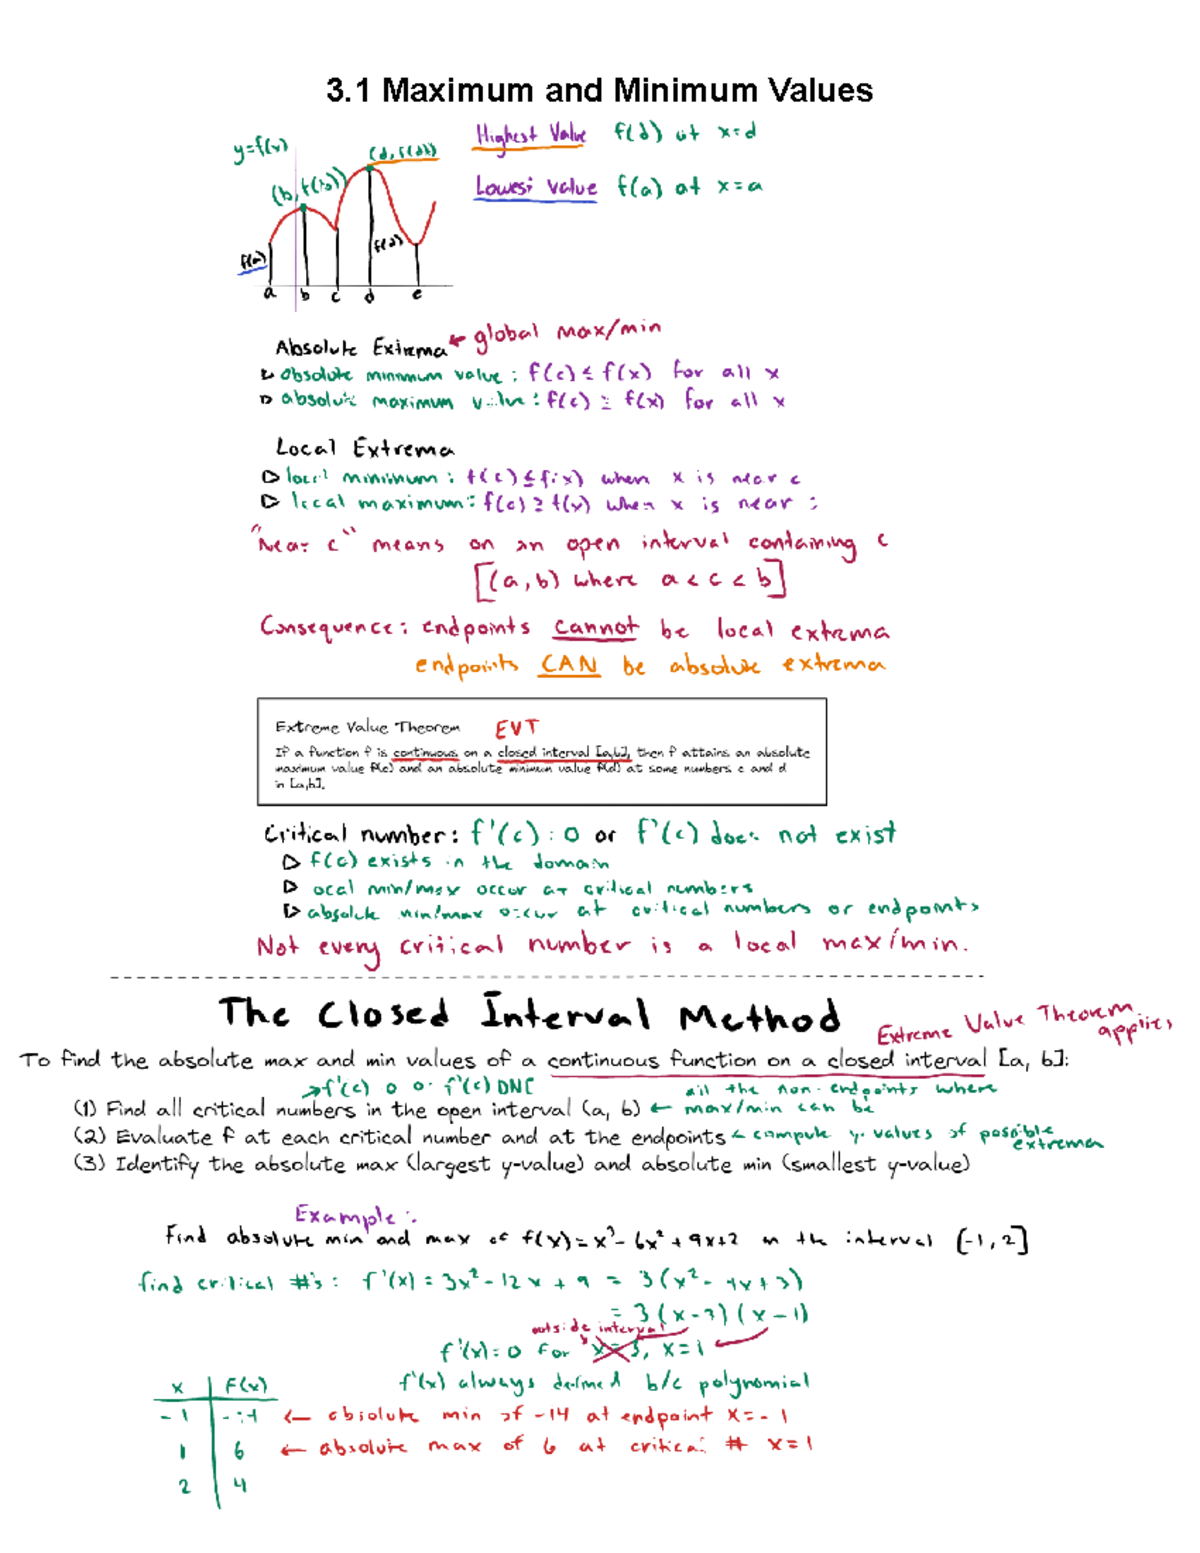 3.1 Maximum and Minimum Values
y=f(x)
(d, f(d))
Highest Value f(d) at x=d
(b, f(b))
Lowest value f(a) at x=a
f(a)
f(d)
a b c d e
Absolute Extrema ← global max/min
▷ absolute minimum value: f(c) ≤ f(x) for all x
▷ absolute maximum value: f(c) ≥ f(x) for all x
Local Extrema
▷ local minimum: f(c) ≤ f(x) when x is near c
▷ local maximum: f(c) ≥ f(x) when x is near c
"Near c" means on an open interval containing c
[(a,b) where a < c < b]
Consequence: endpoints cannot be local extrema
endpoints CAN be absolute extrema
Extreme Value Theorem EVT
If a function f is continuous on a closed interval [a,b], then f attains an absolute
maximum value f(c) and an absolute minimum value f(d) at some numbers c and d
in [a,b].
Critical number: f'(c) = 0 or f'(c) does not exist
▷ f(c) exists in the domain
▷ ocal min/max occur at critical numbers
▷ absolute min/max occur at critical numbers or endpoints
Not every critical number is a local max/min.
The Closed Interval Method
Extreme Value Theorem applies
To find the absolute max and min values of a continuous function on a closed interval [a, b]:
→ f'(c) = 0 or f'(c) DNE
all the non-endpoints where
(1) Find all critical numbers in the open interval (a, b) ← max/min can be
(2) Evaluate f at each critical number and at the endpoints ← compute y-values of possible extrema
(3) Identify the absolute max (largest y-value) and absolute min (smallest y-value)
Example:
Find absolute min and max of f(x) = x³ - 6x² + 9x + 2 on the interval [-1, 2]
find critical #'s: f'(x) = 3x² - 12x + 9 = 3(x² - 4x + 3)
= 3(x-3)(x-1)
outside interval
f'(x) = 0 for x=3, x=1
f'(x) always defined b/c polynomial
x | f(x)
-1 | -14 ← absolute min of -14 at endpoint x=-1
1 | 6 ← absolute max of 6 at critical # x=1
2 | 4